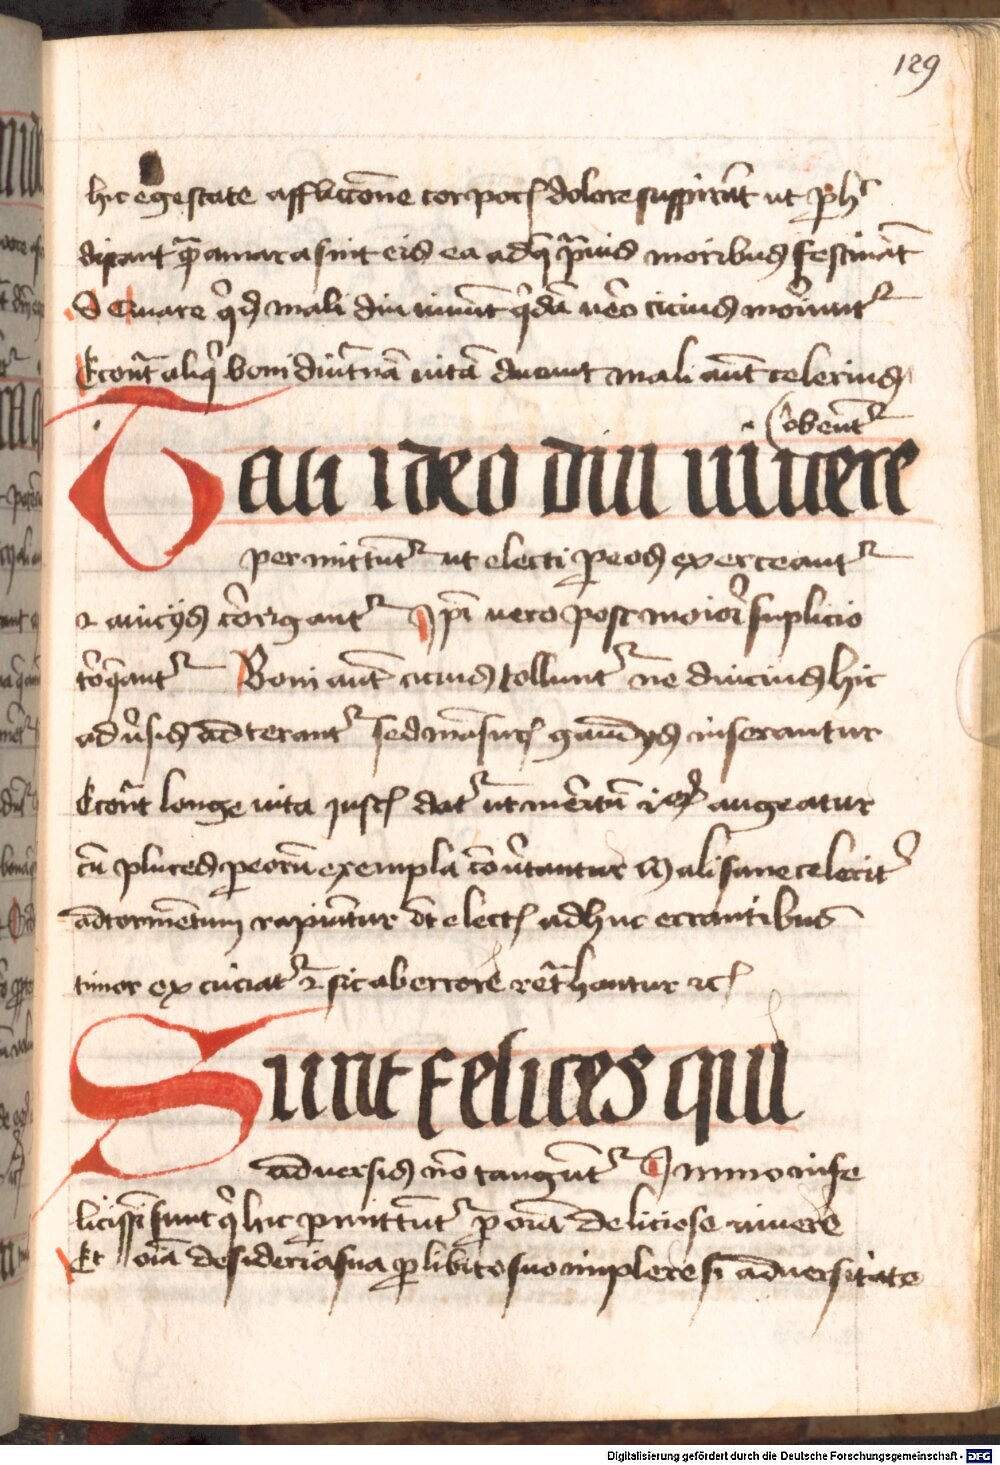 129
hic egestate afflictiōne corporis dolore suspirāt ut ꝓhi
discant q̄ amara sint eis ea ad q̄ prauis moribus festināt
D Quare qd mali diu uiuūt qdā uero cicius moriūtur
Econt̄ aliqͥ boni diut̄nā uitā ducunt mali aut̄ celerius
obeūtr
Tali ideo diu uiuere
permittūtr ut electi per eos exerceantr
⁊ a uicijs corrigantr Ipī uero post maiori suplicio
torqantr Boni aut̄ cicius tolluntr ne diucius hic
aduersis ad terantr sed māsuris gaudijs inserantur
Econt̄ longe uita iustis datr ut meritū iꝑoꝝ augeatur
cū plures per eorū exempla conūtantur Mali sane celerit̄
ad tormētum rapiūtur ut electis adhuc errantibus
timor ex cuciatr ⁊ sic ab errore ret̄hantur ⁊c
Sunt felices qui
aduersis nō tangūtr Immo infe
licissi sunt qͥ hic pͥmittūtr per oīa deliciose uiuere
Et oīa desideria sua ꝓ libito suo implere si aduersitate
Digitalisierung gefördert durch die Deutsche Forschungsgemeinschaft - DFG